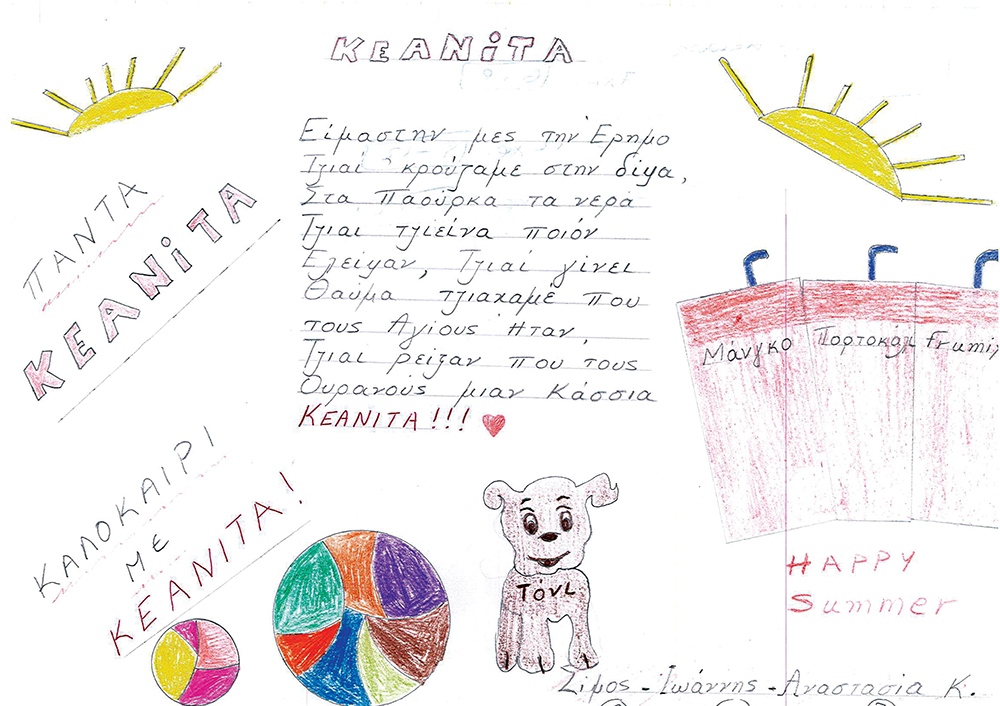 KEANiTA
Είμαστην μες την Έρημο
Τζιαί κρούζαμε στην δίψα,
Στα Παούρκα τα νερά
Τζιαι τζιείνα ποιόν
Ελειψαν, Τζιαί γίνει
Θαύμα τζιαχαμέ που
τους Αγίους Ήταν,
Τζιαι ρείξαν που τους
Ουρανούς μιαν Κάσσια
ΚΕΑΝΙΤΑ!!!
ΠΑΝΤΑ
KEANiTA
ΚΑΛΟΚΑΙΡΙ
ΜΕ
ΚΕΑΝΙΤΑ!
Μάνγκο
Πορτοκάλ
frumix
Τόνι
HAPPY
Summer
Σίμος - Ιωάννης - Αναστασία Κ.